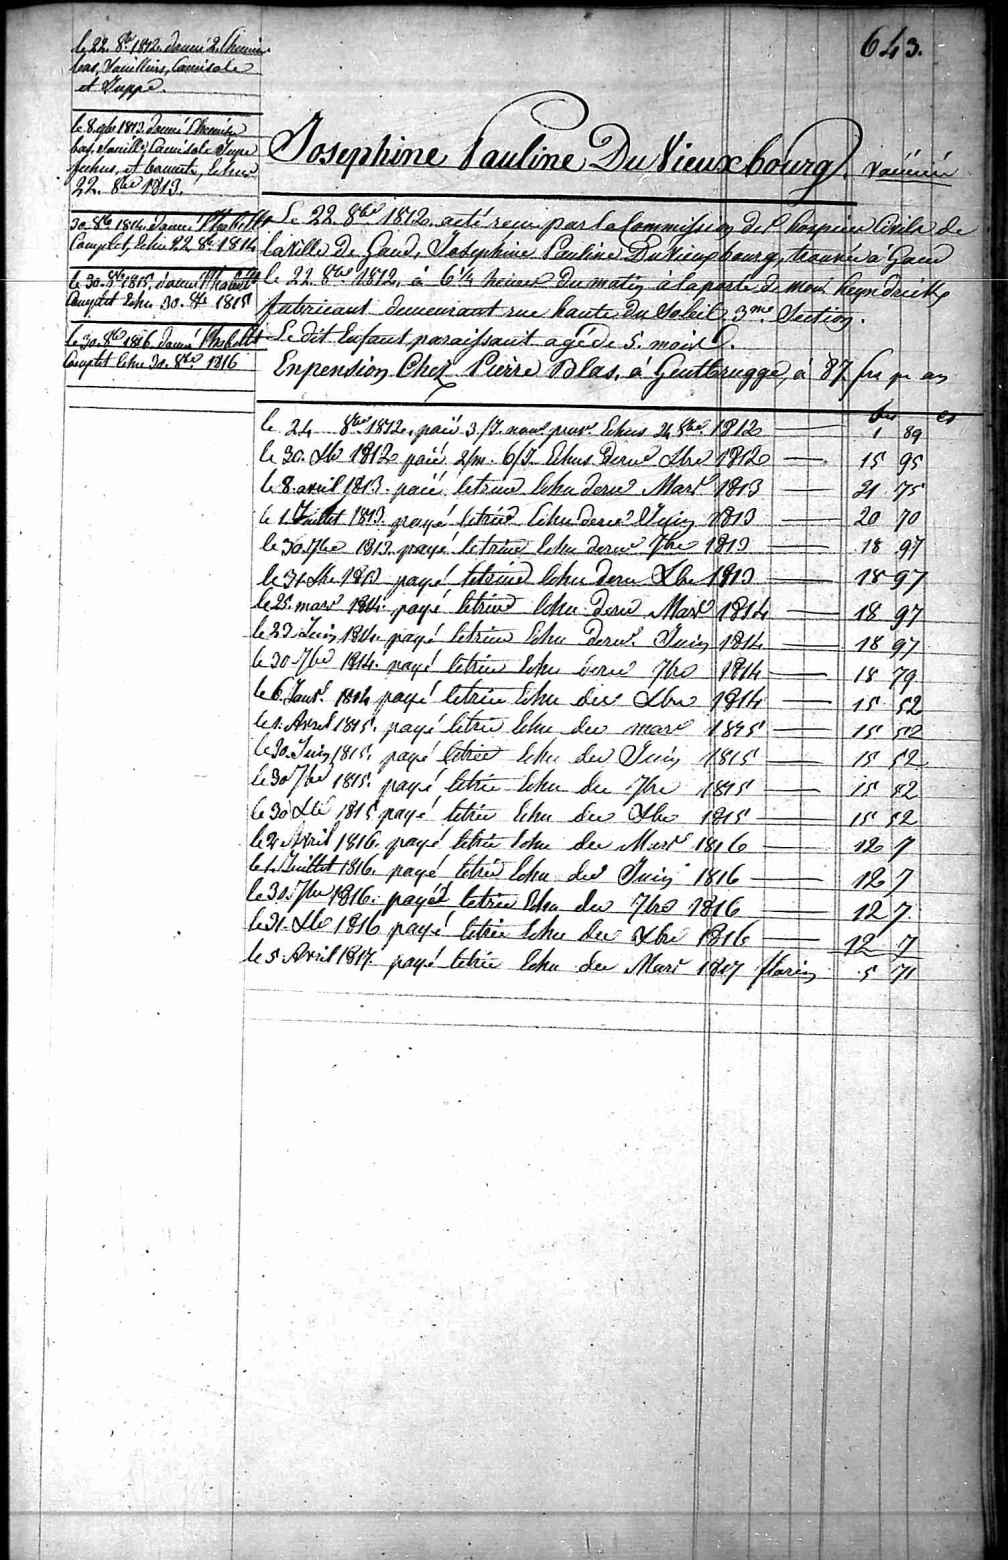 643.
le 22. 8bre 1812. donné 2. Chemises
bas, Souilliers, Camisole
et Juppe.
le 8. 9bre 1813. donné Chemise
bas, Souill: Camisole Jupe
fichus, et bonnets, Echus
22. 8bre 1813.
30. 8bre 1814. donné l'habillt
Complet, Echu 22 8bre 1814
le 30. 8bre 1815. donné l'habillt
Complet Echu 30. 8bre 1815
le 30. 8bre 1816. donné l'habillt
Complet Echu 30. 8bre 1816
Josephine Pauline Du Vieuxbourg. vaccinée
Le 22. 8bre 1812. acté recu par la Commission des hospices Civils de
la ville de Gand, Josephine Pauline Du Vieuxbourg, trouvée à Gand
le 22. 8bre 1812. à 6 1/4 heures du matin à la porte de Mons. heyndrickx
fabricant demeurant rue haute du Soleil, 3me Section.
Le dit Enfant paraissant agé de 5. mois.
En pension Chez Pierre Blas, à Gentbrugge, à 87 frs par an
frs cs
le 24 8bre 1812. paié 3/J. Echus 24 8bre 1812 1 89
le 30. Xbre 1812 paié 2/m. 6/J. Echus dern Xbre 1812 15 95
le 8. avril 1813. paié letrim Echu dern Mars 1813 21 75
le 1. Juillet 1813. payé letrim Echu dern Juin 1813 20 70
le 30. 7bre 1813. payé letrim Echu dern 7bre 1813 18 97
le 31 Xbre 1813 payé letrim Echu dern Xbre 1813 18 97
le 25. mars 1814. payé letrim Echu dern Mars 1814 18 97
le 23 Juin 1814 payé letrim Echu dern Juin 1814 18 97
le 30 7bre 1814. payé letrim Echu dern 7bre 1814 18 79
le 6. Janv. 1814 payé letrim Echu der Xbre 1814 15 52
le 1. Avril 1815. payé letrim Echu der mars 1815 15 52
le 30. Juin 1815. payé letrim Echu der Juin 1815 15 52
le 30 7bre 1815. payé letrim Echu der 7bre 1815 15 52
le 30 Xbre 1815 payé letrim Echu der Xbre 1815 15 52
le 2 Avril 1816. payé letrim Echu der Mars 1816 12 7
le 1. Juillet 1816. payé letrim Echu der Juin 1816 12 7
le 30. 7bre 1816. payé letrim Echu der 7bre 1816 12 7
le 31. Xbre 1816 payé letrim Echu der Xbre 1816 12 7
le 5. Avril 1817. payé letrim Echu der Mars 1817 florins 5 71